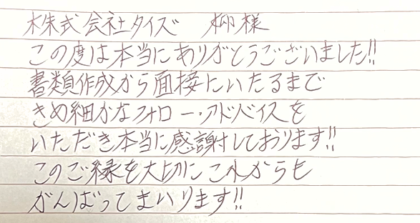 株式会社タイズ　柳様
この度は本当にありがとうございました!!
書類作成から面接にいたるまで
きめ細かなフォロー・アドバイスを
いただき本当に感謝しております!!
このご縁を大切にこれからも
がんばってまいります!!